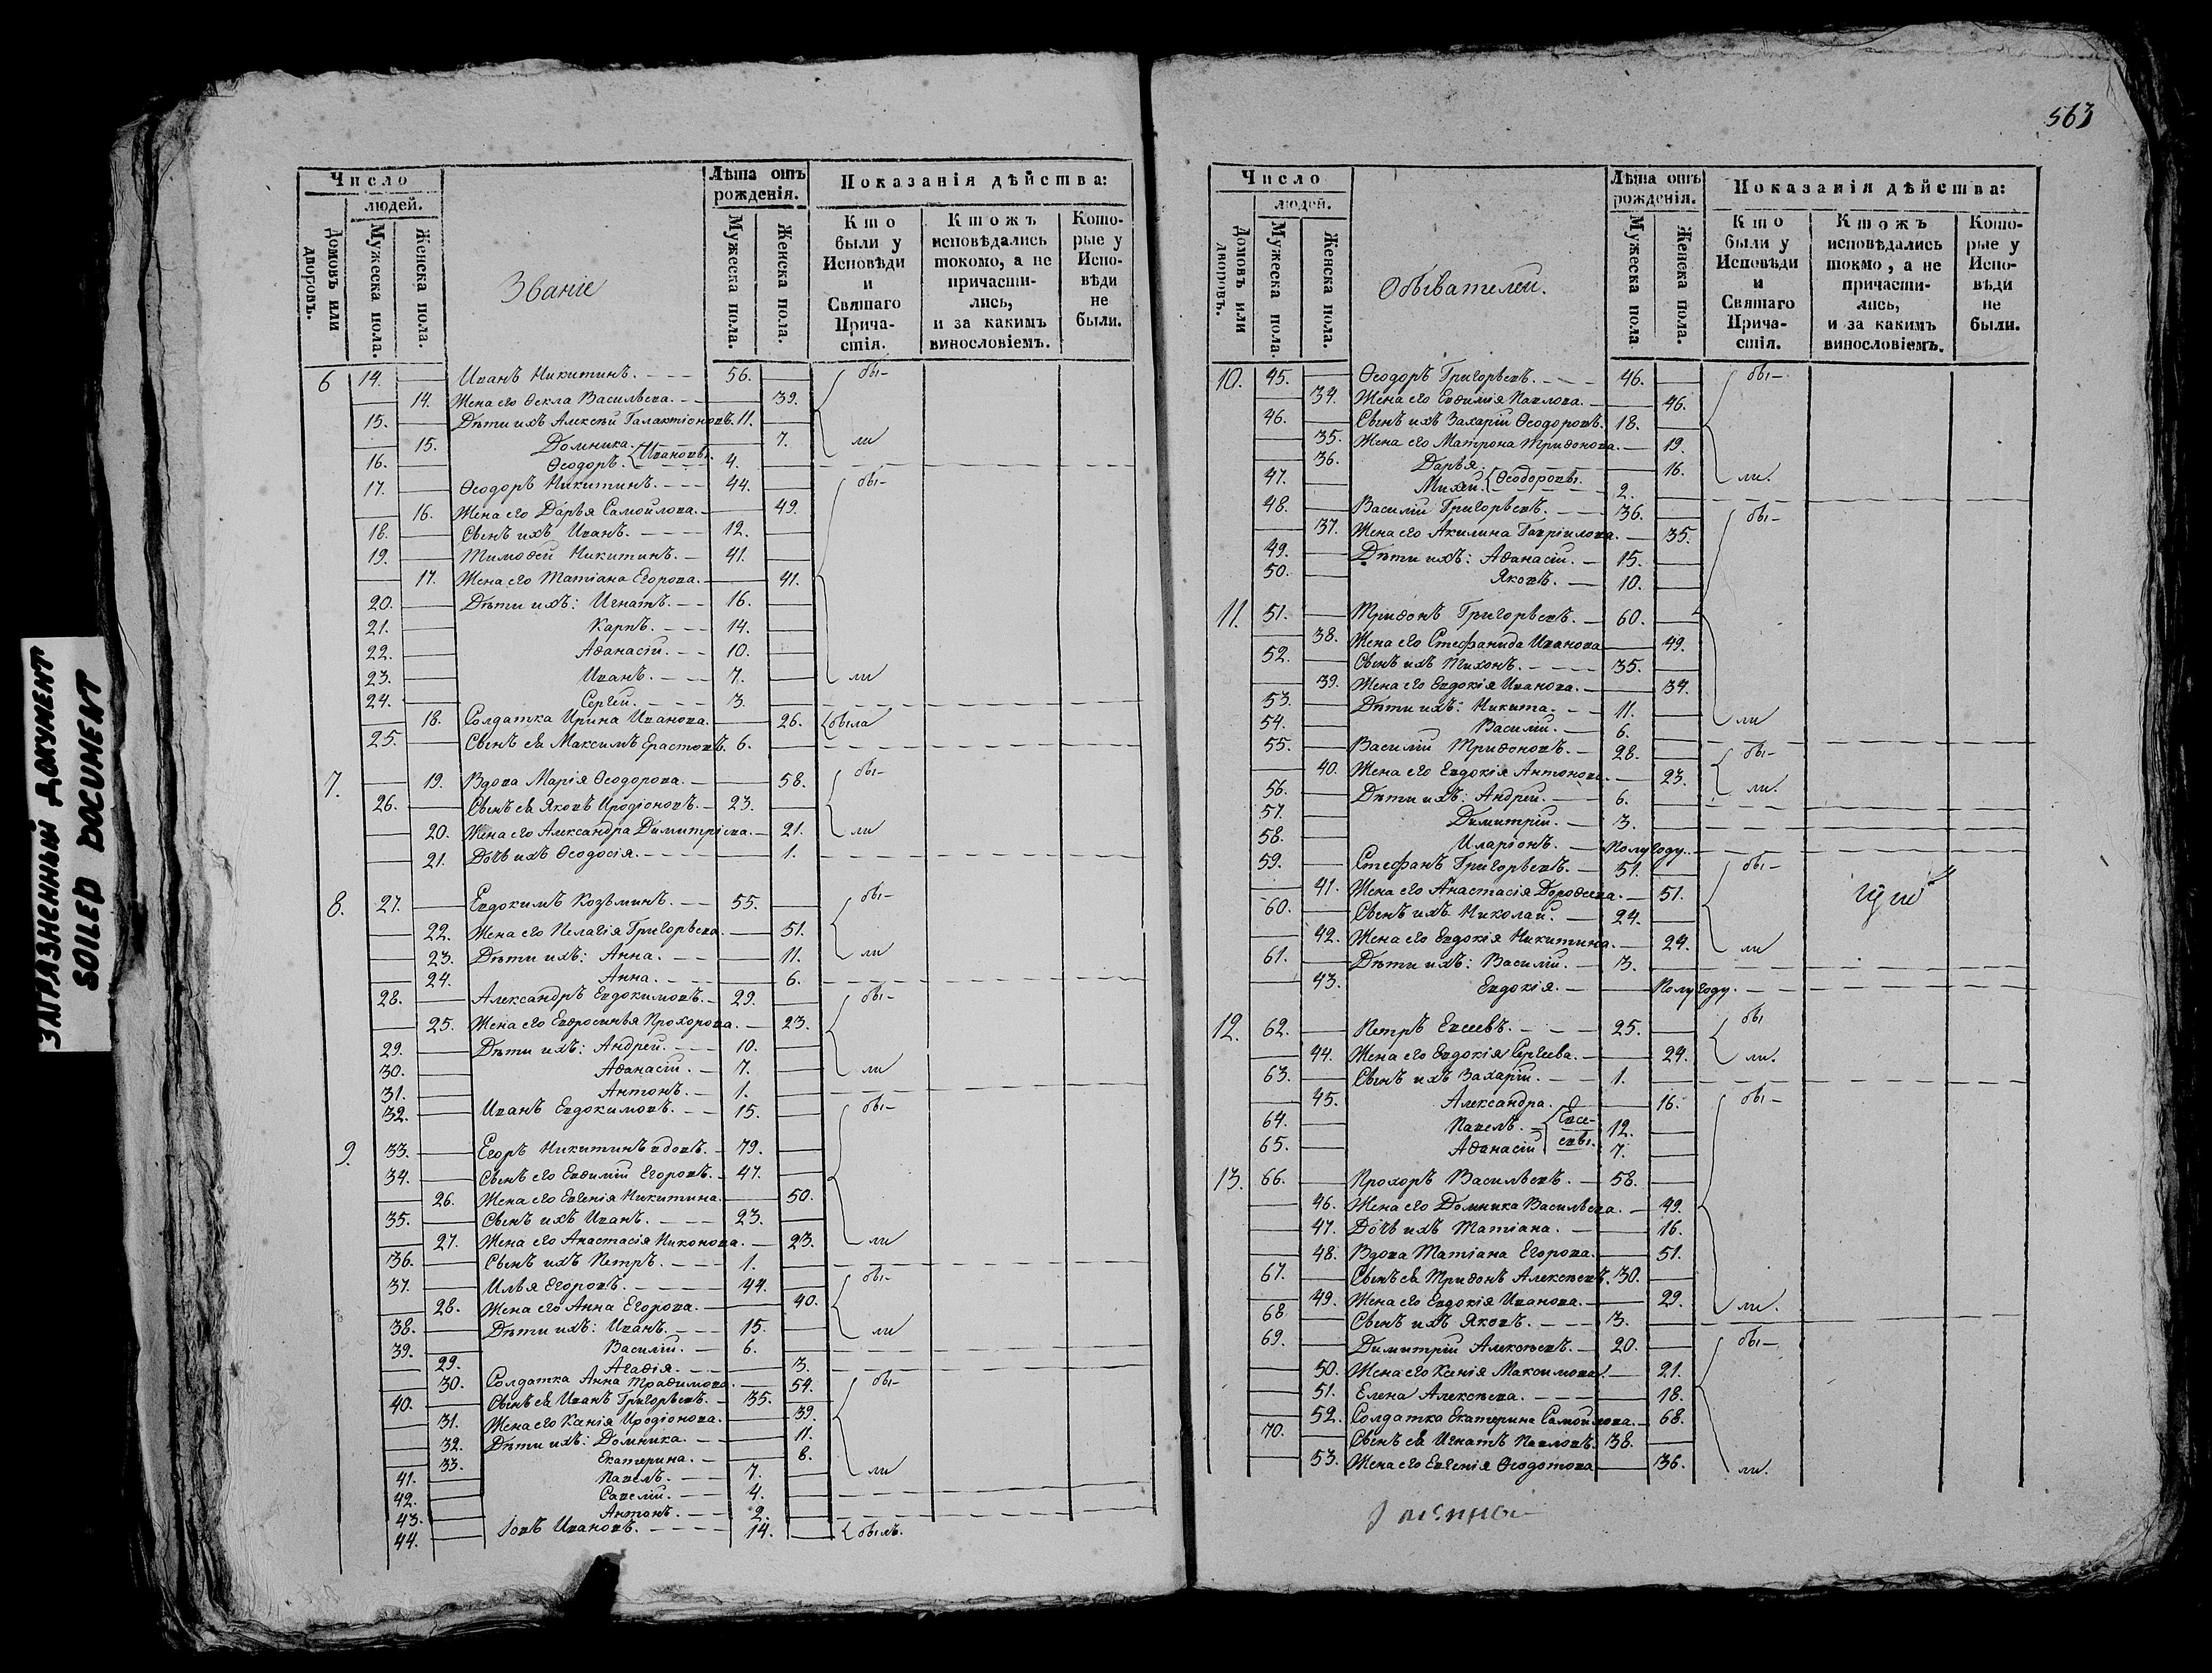 ЗАГРЯЗНЕННЫЙ ДОКУМЕНТ
SOILED DOCUMENT
Число
людей.
Домовъ или дворовъ.
Мужеска пола.
Женска пола.
Званіе
Лѣта отъ рожденія.
Мужеска пола.
Женска пола.
Показанія дѣйства:
Кто были у Исповѣди и Святаго Причастія.
Ктожъ исповѣдались токомо, а не причастились, и за какимъ винословіемъ.
Которые у Исповѣди не были.
6 14. Иванъ Никитинъ. 56. бы-
14. Жена его Ѳекла Васильева. 39.
15. Дѣти ихъ Алексѣй Галактіоновъ. 11.
15. Домника. 7. ли
16. Ѳеодоръ. Ивановы. 4.
17. Ѳеодоръ Никитинъ. 44. бы-
16. Жена его Дарья Самойлова. 49.
18. Сынъ ихъ Иванъ. 12.
19. Тимоѳей Никитинъ. 41.
17. Жена его Татіана Егорова. 41.
20. Дѣти ихъ: Игнатъ. 16.
21. Карпъ. 14.
22. Аѳанасій. 10.
23. Иванъ. 7. ли
24. Сергей. 3.
18. Солдатка Ирина Иванова. 26. была
25. Сынъ ея Максимъ Ерастовъ. 6.
7. 19. Вдова Марія Ѳеодорова. 58. бы-
26. Сынъ ея Яковъ Иродіоновъ. 23.
20. Жена его Александра Димитріева. 21. ли
21. Дочь ихъ Ѳеодосія. 1.
8. 27. Евдокимъ Козьминъ. 55. бы-
22. Жена его Пелагія Григорьева. 51.
23. Дѣти ихъ: Анна. 11. ли
24. Анна. 6.
28. Александръ Евдокимовъ. 29. бы-
25. Жена его Евфросинья Прохорова. 23.
29. Дѣти ихъ: Андрей. 10.
30. Аѳанасій. 7. ли
31. Антонъ. 1.
32. Иванъ Евдокимовъ. 15. бы-
9. 33. Егоръ Никитинъ вдовъ. 79.
34. Сынъ его Евѳимій Егоровъ. 47.
26. Жена его Евгенія Никитина. 50.
35. Сынъ ихъ Иванъ. 23.
27. Жена его Анастасія Никонова. 23. ли
36. Сынъ ихъ Петръ. 1.
37. Илья Егоровъ. 44. бы-
28. Жена его Анна Егорова. 40.
38. Дѣти ихъ: Иванъ. 15. ли
39. Василій. 6.
29. Агафія. 3.
30. Солдатка Анна 54. бы-
40. Сынъ ея Иванъ Григорьевъ. 35.
31. Жена его Ксенія Иродіонова. 39.
32. Дѣти ихъ: Домника. 11.
33. Екатерина. 8. ли
41. Павелъ. 7.
42. Савелій. 4.
43. Антонъ. 2.
44. Іовъ Ивановъ. 14. былъ.
563
Число
людей.
Домовъ или дворовъ.
Мужеска пола.
Женска пола.
Обывателей.
Лѣта отъ рожденія.
Мужеска пола
Женска пола.
Показанія дѣйства:
Кто были у Исповѣди и Святаго Причастія.
Ктожъ исповѣдались токмо, а не причастились, и за какимъ винословіемъ.
Которые у Исповѣди не были.
10. 45. Ѳеодоръ Григорьевъ. 46. бы-
34. Жена его Евѳимія Павлова. 46.
46. Сынъ ихъ Захарій Ѳеодоровъ. 18.
35. Жена его Матрона Трифонова. 19.
36. Дарья. 16. ли.
47. Ѳеодоровы. 2.
48. Василій Григорьевъ. 36. бы-
37. Жена его Акилина Гавріилова. 35.
49. Дѣти ихъ: Аѳанасій. 15.
50. Яковъ. 10.
11. 51. Трифонъ Григорьевъ. 60.
38. Жена его Стефанида Иванова 49.
52. Сынъ ихъ Тихонъ. 35.
39. Жена его Евдокія Иванова. 34.
53. Дѣти ихъ: Никита. 11. ли
54. Василій. 6.
55. Василій Трифоновъ. 28. бы-
40. Жена его Евдокія Антонова. 23. ли.
56. Дѣти ихъ: Андрей. 6.
57. Димитрій. 3.
58. Иларіонъ. Полугоду.
59. Стефанъ Григорьевъ. 51. бы-
41. Жена его Анастасія Дороѳеева. 51.
60. Сынъ ихъ Николай. 24.
42. Жена его Евдокія Никитина. 24. ли
61. Дѣти ихъ: Василій. 3.
43. Евдокія. Полугоду.
12. 62. Петръ Евсеевъ. 25. бы
44. Жена его Евдокія Сергеева. 24. ли.
63. Сынъ ихъ Захарій. 1.
45. Александра. 16. бы-
64. Павелъ. Евсе- 12.
65. Аѳанасій евы. 7.
13. 66. Прохоръ Васильевъ. 58.
46. Жена его Домника Васильева. 49.
47. Дочь ихъ Татіана. 16.
48. Вдова Татіана Егорова. 51.
67. Сынъ ея Трифонъ Алексѣевъ. 30.
49. Жена его Евдокія Иванова. 29. ли.
68 Сынъ ихъ Яковъ. 3.
69. Димитрій Алексѣевъ. 20. бы-
50. Жена его Ксенія Максимова. 21.
51. Елена Алексѣева. 18.
52. Солдатка Екатерина Самойлова. 68.
70. Сынъ ея Игнатъ Павловъ. 38.
53. Жена его Евгенія Ѳеодотова 36. ли.